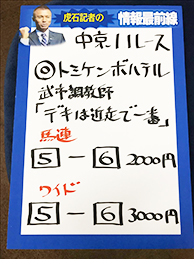 虎石記者の
情報最前線
中京11レース
◎トミケンボハテル
武市調教師
「デキは近走で一番」
馬連
5 - 6 2000円
ワイド
5 - 6 3000円